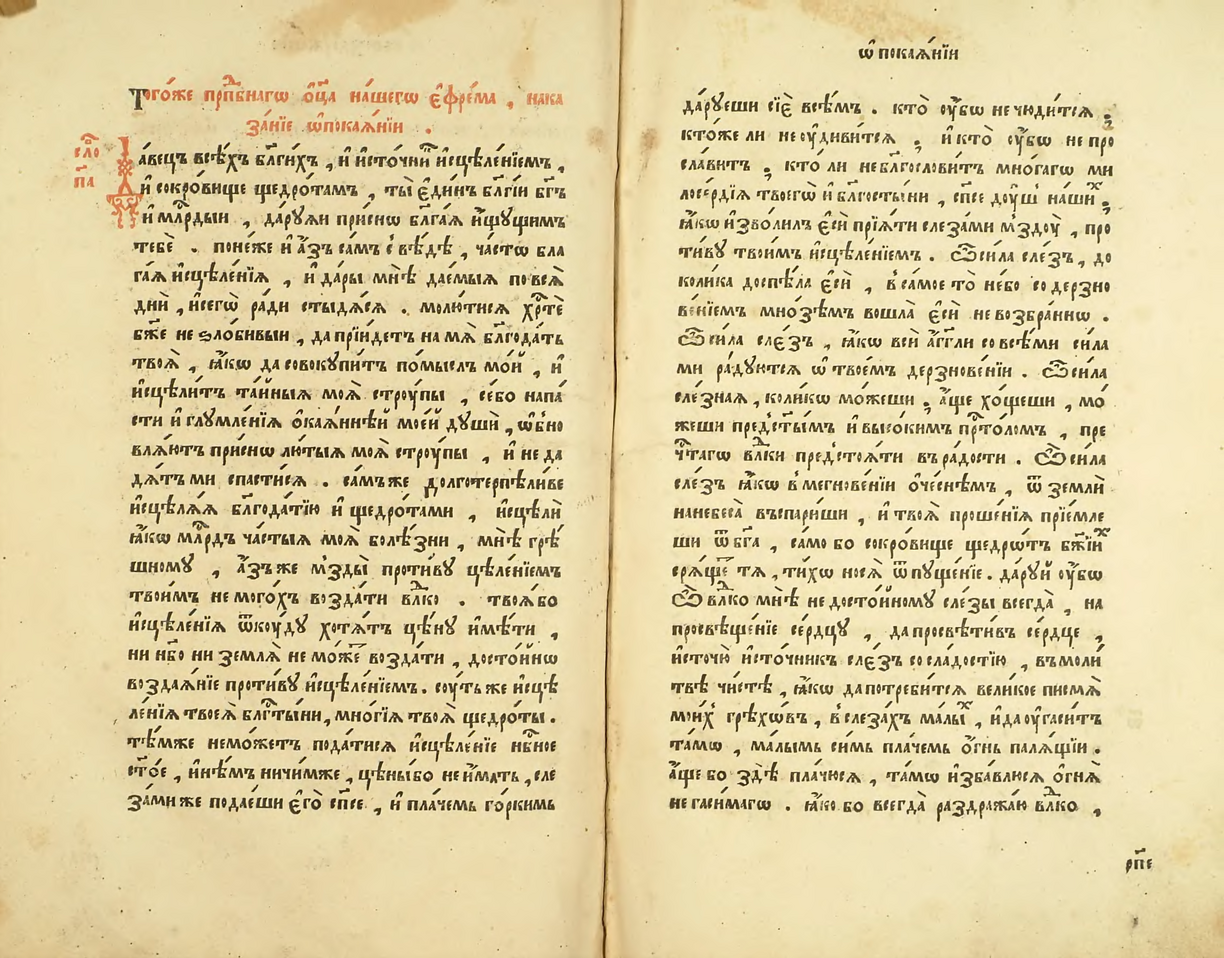 Тогѡ́же прпⷣбнагѡ ѻ҆ц҃а нашегѡ є҆фре́ма , нака
за́нїе ѡ҆покаѧ́нїи .
сло́
п҃а
Да́вецъ всѣ́хъ бл҃ги́хъ , и҆ и҆сто́чниⷦ҇ и҆сцѣле́нїемъ ,
и҆ сокро́вище щедро́тамъ , ты̀ є҆ди́нъ бл҃гі́и бг҃ъ
и҆ млⷭ҇рдыи , да́рꙋѧи при́снѡ бл҃га́ѧ и҆́щꙋщимъ
тебѐ . поне́же и҆ а҆́зъ са́мъ свѣ́дѣ , ча́стѡ бла
га́ѧ и҆сцѣле́нїѧ , и҆ да́ры мнѣ̀ дае́мыѧ по всѧ̀
дни̑ , и҆сегѡ̀ ра́ди стыдѧ́сѧ . молю́тисѧ хрⷭ҇тѐ
бж҃е не ѕло́бивыи , да прїи́детъ на мѧ̀ бл҃года́ть
твоѧ̀ , ꙗ҆́кѡ да совокꙋпи́тъ по́мыслъ мо́й , и҆
и҆сцѣли́тъ та́йныѧ моѧ̀ стрꙋ́пы , се́бо напа́
сти и҆ глꙋмле́нїѧ ѻ҆каѧ́ннѣй мое́й дꙋшѝ , ѡ҆бно
влѧ́ютъ при́снѡ лю́тыѧ моѧ̀ стрꙋ́пы , и҆ не да
дѧ́тъ ми спасти́сѧ . са́мъ же долготерпѣ́ливе
и҆сцѣлѧ́ѧ бл҃года́тїю и҆ щедро́тами , и҆сцѣли̑
ꙗ҆́кѡ млⷭ҇рдъ ча́стыѧ моѧ̀ болѣ́зни , мнѣ̀ грѣ́
шномꙋ , а҆́зъ же мзды̀ проти́вꙋ цѣле́нїемъ
твои́мъ не мого́хъ возда́ти влⷣко . твоѧ́бо
и҆сцѣле́нїѧ ѿкꙋ́дꙋ хотѧ́тъ цѣ́нꙋ и҆мѣ́ти ,
ни нб҃о ни землѧ̀ не мо́же возда́ти , досто́йнѡ
воздаѧ́нїе проти́вꙋ и҆сцѣле́нїемъ . сꙋ́ть же и҆сцѣ
ле́нїѧ твоеѧ̀ блгⷭ҇ты́ни , мно́гїѧ твоѧ̀ щедро́ты .
тѣ́мже не мо́жетъ пода́тисѧ и҆сцѣле́нїе нбⷭ҇ное
ст҃о́е , и҆нѣ́мъ ничи́мже , цѣны́ бо не и҆́мать , сле
за́ми же подае́ши є҆го̀ сп҃се , и҆ пла́чемъ го́ркимъ
ѡ҆ покаѧ́нїи
да́рꙋеши сїѐ всѣ́мъ . кто̀ ᲂу҆́бѡ не чю́дитсѧ ;
кто́же ли не ᲂу҆диви́тсѧ ; и҆ кто̀ ᲂу҆́бѡ не про
сла́витъ ; кто́ ли не бл҃гослови́тъ мно́гагѡ ми
лосе́рдїѧ твоегѡ̀ и҆ бл҃госты́ни , сп҃се дꙋ́ш на́шиⷯ ;
ꙗ҆́кѡ и҆зво́лилъ є҆сѝ прїѧ́ти слеза́ми мздꙋ̀ , про
ти́вꙋ твои́мъ и҆сцѣле́нїемъ . Ѽ си́ла сле́зъ , до
коли́ка доспѣ́ла є҆сѝ , в са́мое то̀ не́бо со дерзно
ве́нїемъ мно́зѣмъ вошла̀ є҆сѝ не возбра́ннѡ .
Ѽ си́ла сле́зъ , ꙗ҆́кѡ всѝ а҆́гг҃ли со все́ми си́ла
ми ра́дꙋютсѧ ѡ҆ твое́мъ дерзнове́нїи . Ѽ си́ла
сле́знаѧ , коли́кѡ мо́жеши ; а҆́ще хо́щеши , мо́
жеши предст҃ы́мъ и҆ высо́кимъ прⷭ҇то́ломъ , пре
чⷭ҇тагѡ влⷣки предстоѧ́ти въ ра́дости . Ѽ си́ла
сле́зъ ꙗ҆́кѡ в мегнове́нїи ѻ҆́чеснѣмъ , ѿ землѝ
на небеса̀ въспари́ши , и҆ твоѧ̀ проше́нїѧ прїе́мле
ши ѿ бг҃а , са́мо бо сокро́вище щедрѡ́тъ бж҃їиⷯ
срѧ́ще тѧ , ти́хѡ носѧ̀ ѿпꙋще́нїе . да́рꙋй ᲂу҆́бѡ
Ѽ влⷣко мнѣ̀ не досто́йномꙋ сле́зы всегда̀ , на
просвѣще́нїе се́рдцꙋ , да просвѣти́въ се́рдце ,
и҆сточю̀ и҆сто́чникъ сле́зъ со сла́достїю , въ моли́
твѣ чи́стѣ , ꙗ҆́кѡ да потреби́тсѧ вели́кое писмѧ̀
мои́х грѣхѡ́въ , в слеза́хъ ма́лыⷯ , и҆ да ᲂу҆гаси́тъ
та́мѡ , ма́лымъ си́мъ пла́чемъ ѻ҆́гнь палѧ́щїи .
а҆́ще бо здѣ̀ пла́чюсѧ , та́мѡ и҆зба́влюсѧ ѻ҆гнѧ̀
не гаси́магѡ . ꙗ҆́ко бо всегда̀ раздража́ю влⷣко ,
рп҃е